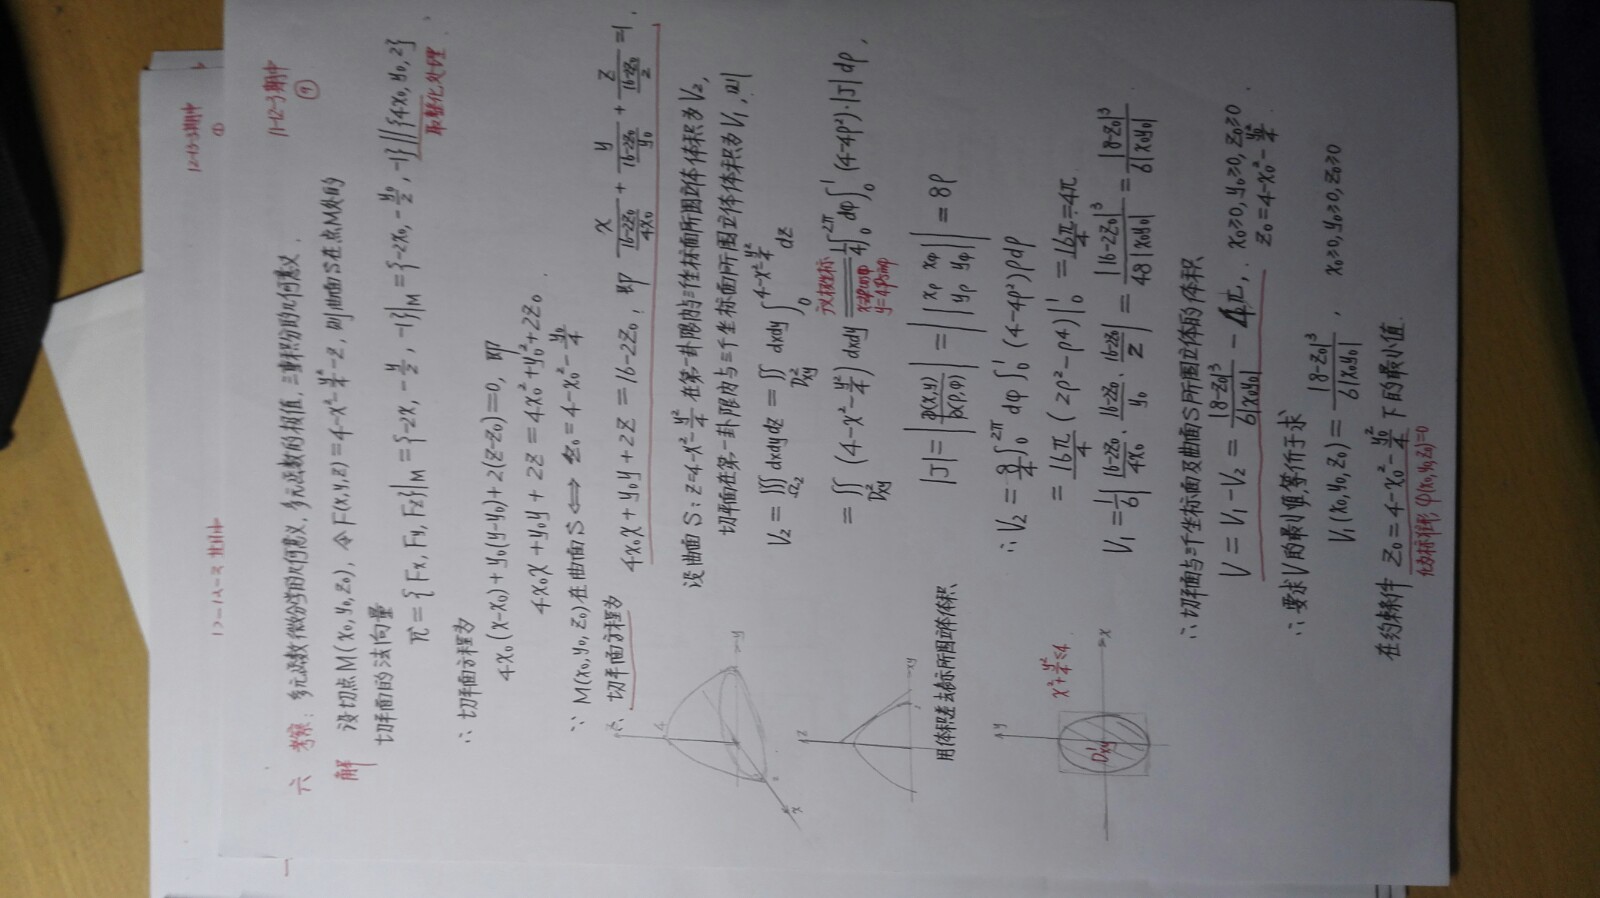 12-13-3期中
①
11-12-3期中
⑨
六 考察：多元函数微分学的几何意义、多元函数的极值、三重积分的几何意义.
解 设切点M(x₀,y₀,z₀), 令F(x,y,z)=4-x²-y²/4-z, 则曲面S在点M处的
切平面的法向量
n⃗={Fx,Fy,Fz}|M={-2x,-y/2,-1}|M={-2x₀,-y₀/2,-1}||{4x₀,y₀,2}
取整化处理
∴切平面方程为
4x₀(x-x₀)+y₀(y-y₀)+2(z-z₀)=0, 即
4x₀x+y₀y+2z=4x₀²+y₀²+2z₀.
∵M(x₀,y₀,z₀)在曲面S⟺z₀=4-x₀²-y₀²/4
∴切平面方程为 4x₀x+y₀y+2z=16-2z₀, 即 x/((16-2z₀)/(4x₀))+y/((16-2z₀)/y₀)+z/((16-2z₀)/2)=1,
设曲面S:z=4-x²-y²/4在第一卦限内与三个坐标面所围立体体积为V₂,
切平面在第一卦限内与三个坐标面所围立体体积为V₁,则
V₂=∭Ω₂ dxdydz=∬Dxy dxdy∫₀^(4-x²-y²/4) dz
=∬Dxy (4-x²-y²/4)dxdy 1/4∫₀^2π dφ∫₀¹(4-4ρ²)·|J|dρ,
广义极坐标
x=2ρcosφ
y=4ρsinφ
|J|=|∂(x,y)/∂(ρ,φ)|=||xρ xφ
yρ yφ||=8ρ
用体积差去表示所围立体体积
∴V₂=8/4∫₀^2π dφ∫₀¹(4-4ρ²)ρdρ
=16π/4(2ρ²-ρ⁴)|₀¹=16π/4=4π
V₁=1/6|(16-2z₀)/(4x₀)·(16-2z₀)/y₀·(16-2z₀)/2|=|16-2z₀|³/(48|x₀y₀|)=|8-z₀|³/(6|x₀y₀|)
x²+y²/4≤4
Dxy
∴切平面与三个坐标面及曲面S所围立体的体积
V=V₁-V₂=|8-z₀|³/(6|x₀y₀|)-4π, x₀≥0,y₀≥0,z₀≥0
z₀=4-x₀²-y₀²/4.
∴要求V的最小值,等价于求
V₁(x₀,y₀,z₀)=|8-z₀|³/(6|x₀y₀|), x₀≥0,y₀≥0,z₀≥0
在约束条件z₀=4-x₀²-y₀²/4下的最小值.
化为标准形φ(x₀,y₀,z₀)=0